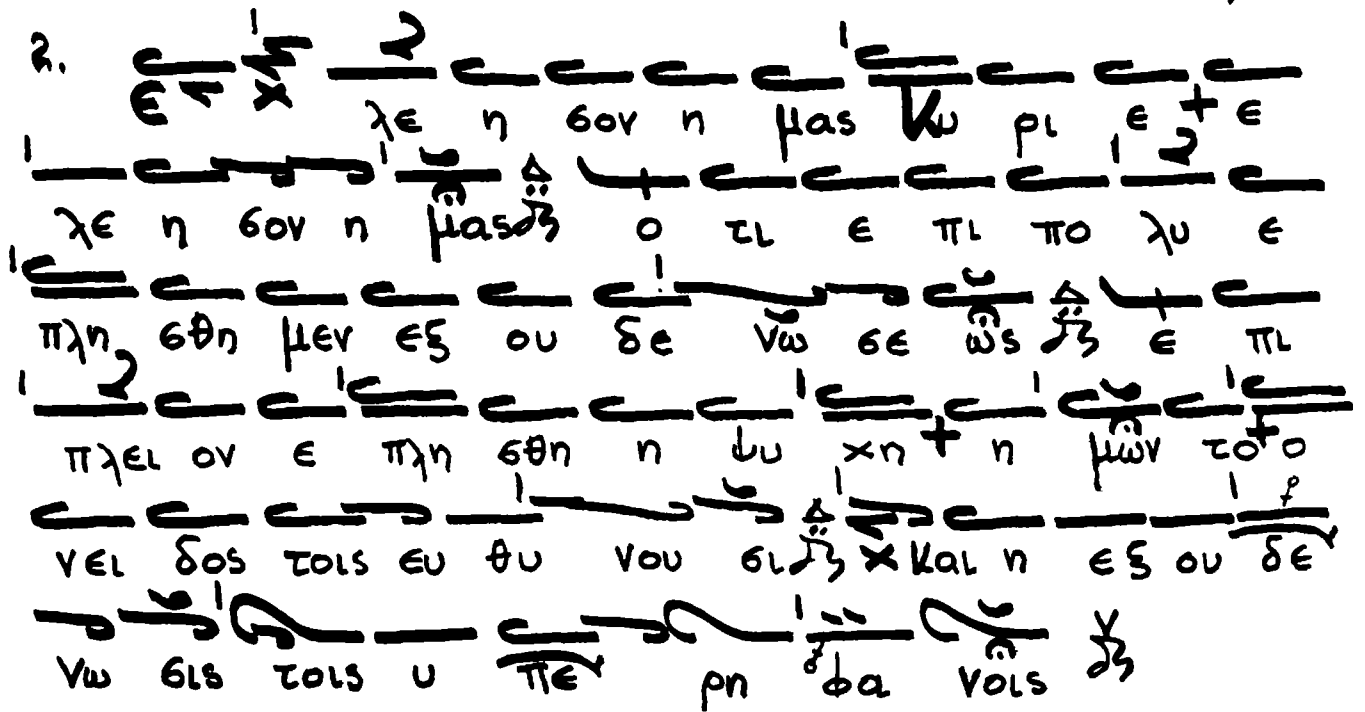 2. ε λε η σον η μας Κυ ρι ε + ε
λε η σον η μας ο τι ε πι πο λυ ε
πλη σθη μεν εξ ου δε νω σε ως ε πι
πλει ον ε πλη σθη η ψυ χη + η μων το + ο
νει δος τοις ευ θυ νου σι και η εξ ου δε
νω σις τοις υ πε ρη φα νοις